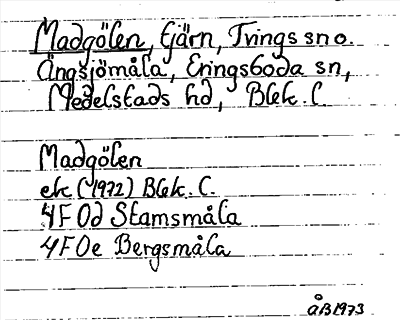 Madgölen, tjärn, Tvings sn o.
Ängsjömåla, Eringsboda sn,
Medelstads hd, Blek. l.
Madgölen
ek (1972) Blek. l.
4F 0d Stamsmåla
4F 0e Bergsmåla
ÅB 1973